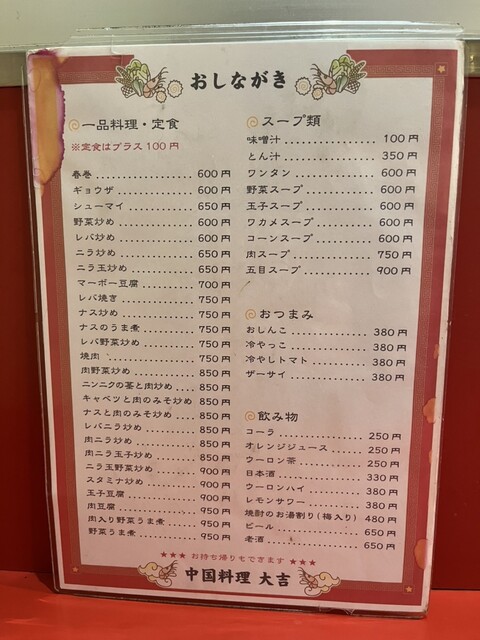 おしながき
一品料理・定食
※定食はプラス100円
春巻 600円
ギョウザ 600円
シューマイ 650円
野菜炒め 600円
レバ炒め 600円
ニラ炒め 650円
ニラ玉炒め 650円
マーボー豆腐 700円
レバ焼き 750円
ナス炒め 750円
ナスのうま煮 750円
レバ野菜炒め 750円
焼肉 750円
肉野菜炒め 850円
ニンニクの茎と肉炒め 850円
キャベツと肉のみそ炒め 850円
ナスと肉のみそ炒め 850円
レバニラ炒め 850円
肉ニラ炒め 850円
肉ニラ玉子炒め 850円
ニラ玉野菜炒め 900円
スタミナ炒め 900円
玉子豆腐 900円
肉豆腐 950円
肉入り野菜うま煮 950円
野菜うま煮 950円
スープ類
味噌汁 100円
とん汁 350円
ワンタン 600円
野菜スープ 600円
玉子スープ 600円
ワカメスープ 600円
コーンスープ 600円
肉スープ 750円
五目スープ 900円
おつまみ
おしんこ 380円
冷やっこ 380円
冷やしトマト 380円
ザーサイ 380円
飲み物
コーラ 250円
オレンジジュース 250円
ウーロン茶 250円
日本酒 330円
ウーロンハイ 380円
レモンサワー 380円
焼酎のお湯割り(梅入り) 480円
ビール 650円
老酒 650円
★★★ お持ち帰りもできます ★★★
中国料理 大吉